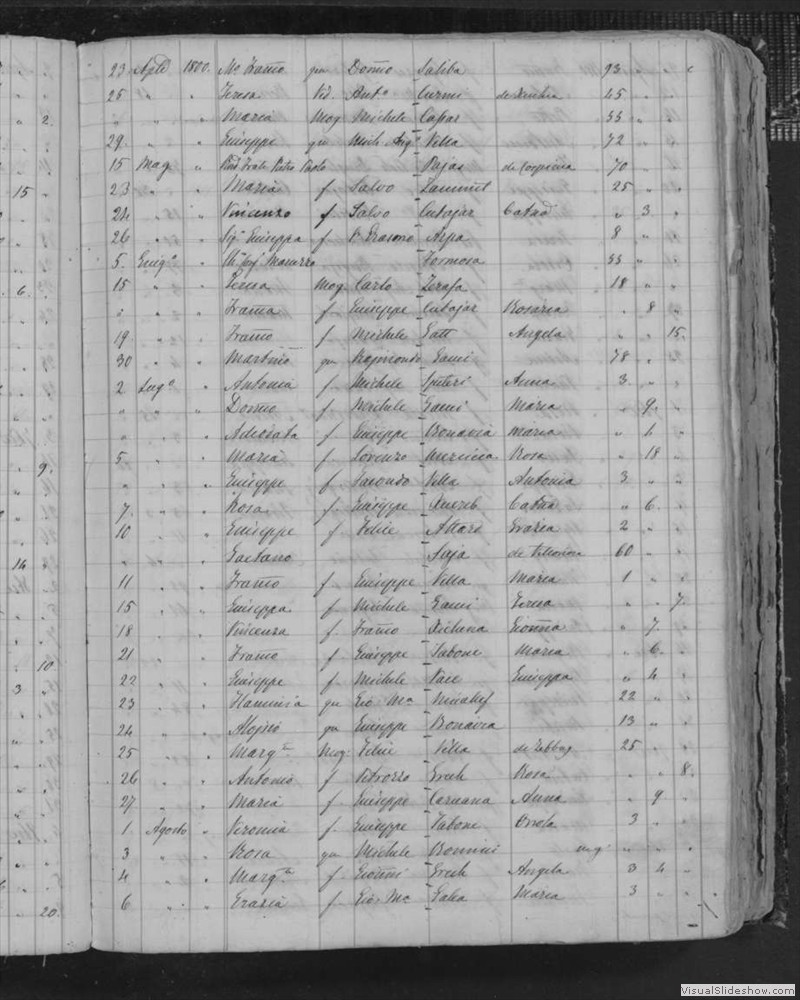 23 Aple 1800. Ma Franco qm Domco Saliba 93 " "
25 " " Teresa Ved. Anto Curmi 45 " "
" " " Maria Mog Michele Capar 33 " "
29 " " Giuseppe qm Mich. Ang. Villa 72 " "
15 Mag " Frate Pietro Paolo 70 " "
2.
23 " " Maria f Salvo Zammit 25 " "
15
24 " " Vincenzo f Salvo Cutajar Catna " 3 "
26 " " Sigra Giuseppa f Erasmo Arpa 8 " "
5. Giugo " Formosa 33 " "
15 " " Teresa Mog Carlo Zerafa 18 " "
6.
" " " Franca f Giuseppe Cutajar Rosaria " 8 "
19 " " Franco f Michele Gatt Angela " " 15.
30 " " Martino qm Raimondo Gauci 78 " "
2 Lugo " Antonia f Michele Spiteri Anna 3 " "
" " " Domco f Michele Gauci Maria " 9. "
" " " Adeodata f Giuseppe Bonavia Maria " 1 "
5 " " Maria f Lorenzo Mercieca Rosa " 18 "
9.
" " " Giuseppe f Villa Antonia 3 " "
7. " " Rosa f Giuseppe Xuereb Catna " 6. "
10 " " Giuseppe f Felice Attard Grazia 2 " "
" " " Gaetano 60 " "
14
11 " " Franco f Giuseppe Villa Maria 1 " "
15 " " Giuseppa f Michele Gauci Teresa " " 7.
18 " " Vincenza f Franco Xicluna Gionna " 7. "
21 " " Franco f Giuseppe Tabone Maria " 6. "
10
22 " " Giuseppe f Michele Pace Giuseppa " 4 "
3
23 " " Flaminia qm Gio Ma 22 " "
24 " " Aloisio qm Giuseppe Bonavia 13 " "
25 " " Margta Mog. Felice Villa de Zebbug 25 " "
26 " " Antonio f Grech Rosa " " 8.
27 " " Maria f Giuseppe Caruana Anna " 9 "
1 Agosto " Veronica f Giuseppe Tabone Orsola 3 " "
3 " " Rosa qm Michele Bonnici " " "
4 " " Margta f Gionni Grech Angela 3 4 "
6 " " Grazia f Gio. Ma Galea Maria 3 " "
20.
VisualSlideshow.com